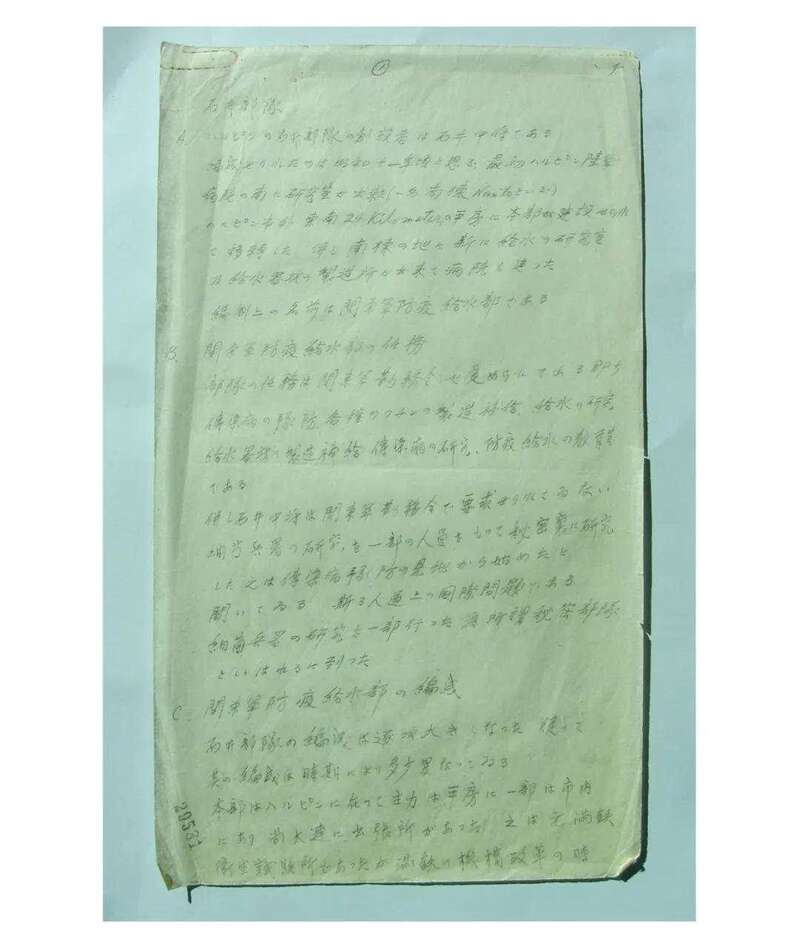 ①
石井部隊
A. ハルピンの石井部隊の創設者は石井中将である
編成せられたのは昭和十一年頃と思ふ 最初ハルピン陸軍
病院の南に研究室が出来
ハルピン市の東南24 Kilometerの平房に本部が建設せられ
て移転した 併し南棟の地に新に給水の研究室
及給水器材の製造所が出来て病院と
編制上の名前は関東軍防疫給水部である
B. 関東軍防疫給水部の任務
部隊の任務は関東軍勤務令に
傳染病の豫防各種ワクチンの製造補給、給水の研究
給水器材の製造補給 傳染病の研究、防疫給水の教育
である
併し石井中将は関東軍勤務令で要求せられてゐない
細菌兵器の研究を一部の人員をもって秘密裏に研究
した 之は傳染病豫防の見地から始めたと
聞いてゐる 斯る人道上の国際問題である
細菌兵器の研究を一部行った為所謂秘密部隊
といはれるに到った
C. 関東軍防疫給水部の編成
石井部隊の編成は逐次大きくなった 従って
其の編成は時期により多少異なってゐる
本部はハルピンに在って主力は平房に一部は市内
にあり 尚大連に出張所があった 之は元満鉄
衛生試験所であったが満鉄の機構改革の時